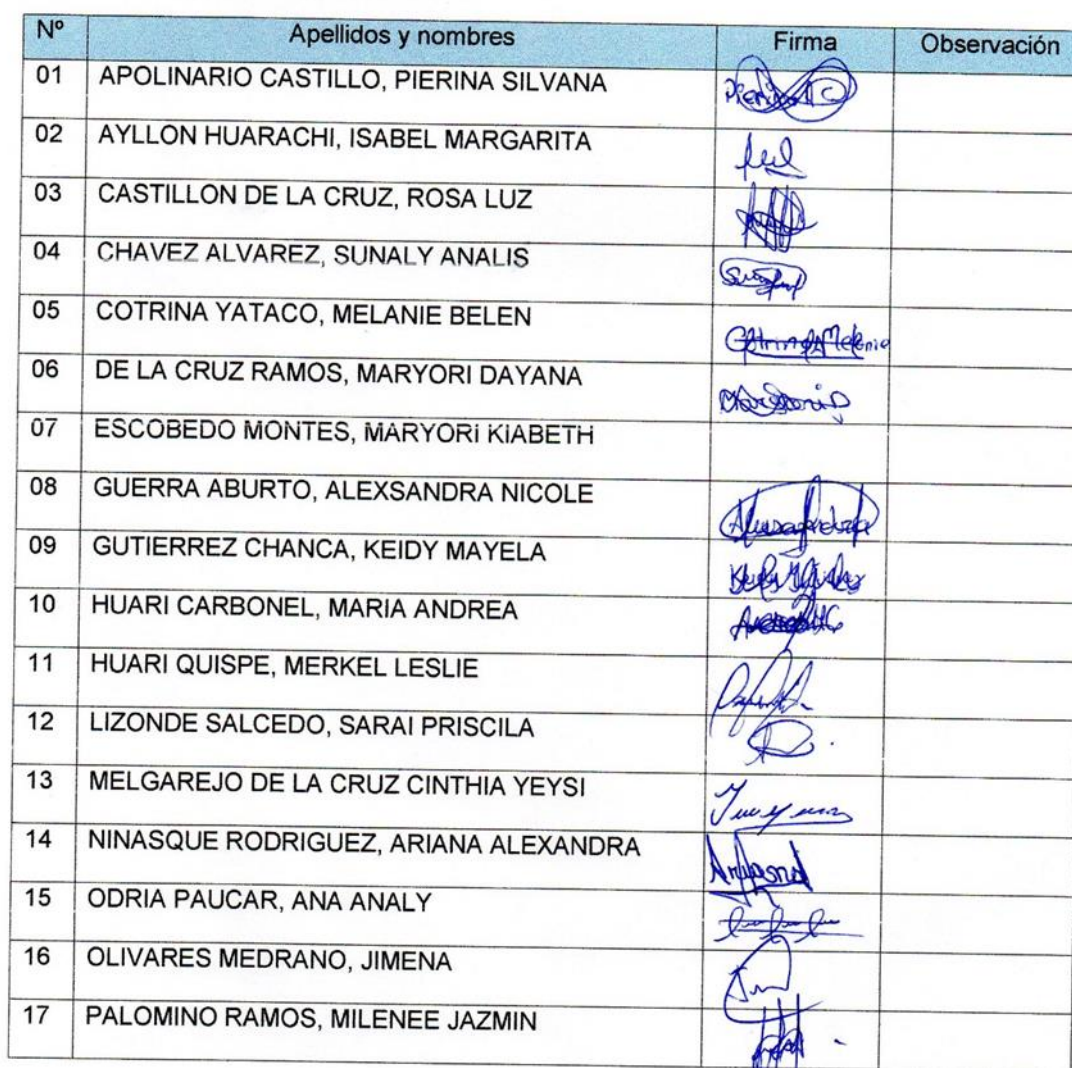 Nº Apellidos y nombres Firma Observación
01 APOLINARIO CASTILLO, PIERINA SILVANA
02 AYLLON HUARACHI, ISABEL MARGARITA
03 CASTILLON DE LA CRUZ, ROSA LUZ
04 CHAVEZ ALVAREZ, SUNALY ANALIS
05 COTRINA YATACO, MELANIE BELEN
06 DE LA CRUZ RAMOS, MARYORI DAYANA
07 ESCOBEDO MONTES, MARYORI KIABETH
08 GUERRA ABURTO, ALEXSANDRA NICOLE
09 GUTIERREZ CHANCA, KEIDY MAYELA
10 HUARI CARBONEL, MARIA ANDREA
11 HUARI QUISPE, MERKEL LESLIE
12 LIZONDE SALCEDO, SARAI PRISCILA
13 MELGAREJO DE LA CRUZ CINTHIA YEYSI
14 NINASQUE RODRIGUEZ, ARIANA ALEXANDRA
15 ODRIA PAUCAR, ANA ANALY
16 OLIVARES MEDRANO, JIMENA
17 PALOMINO RAMOS, MILENEE JAZMIN